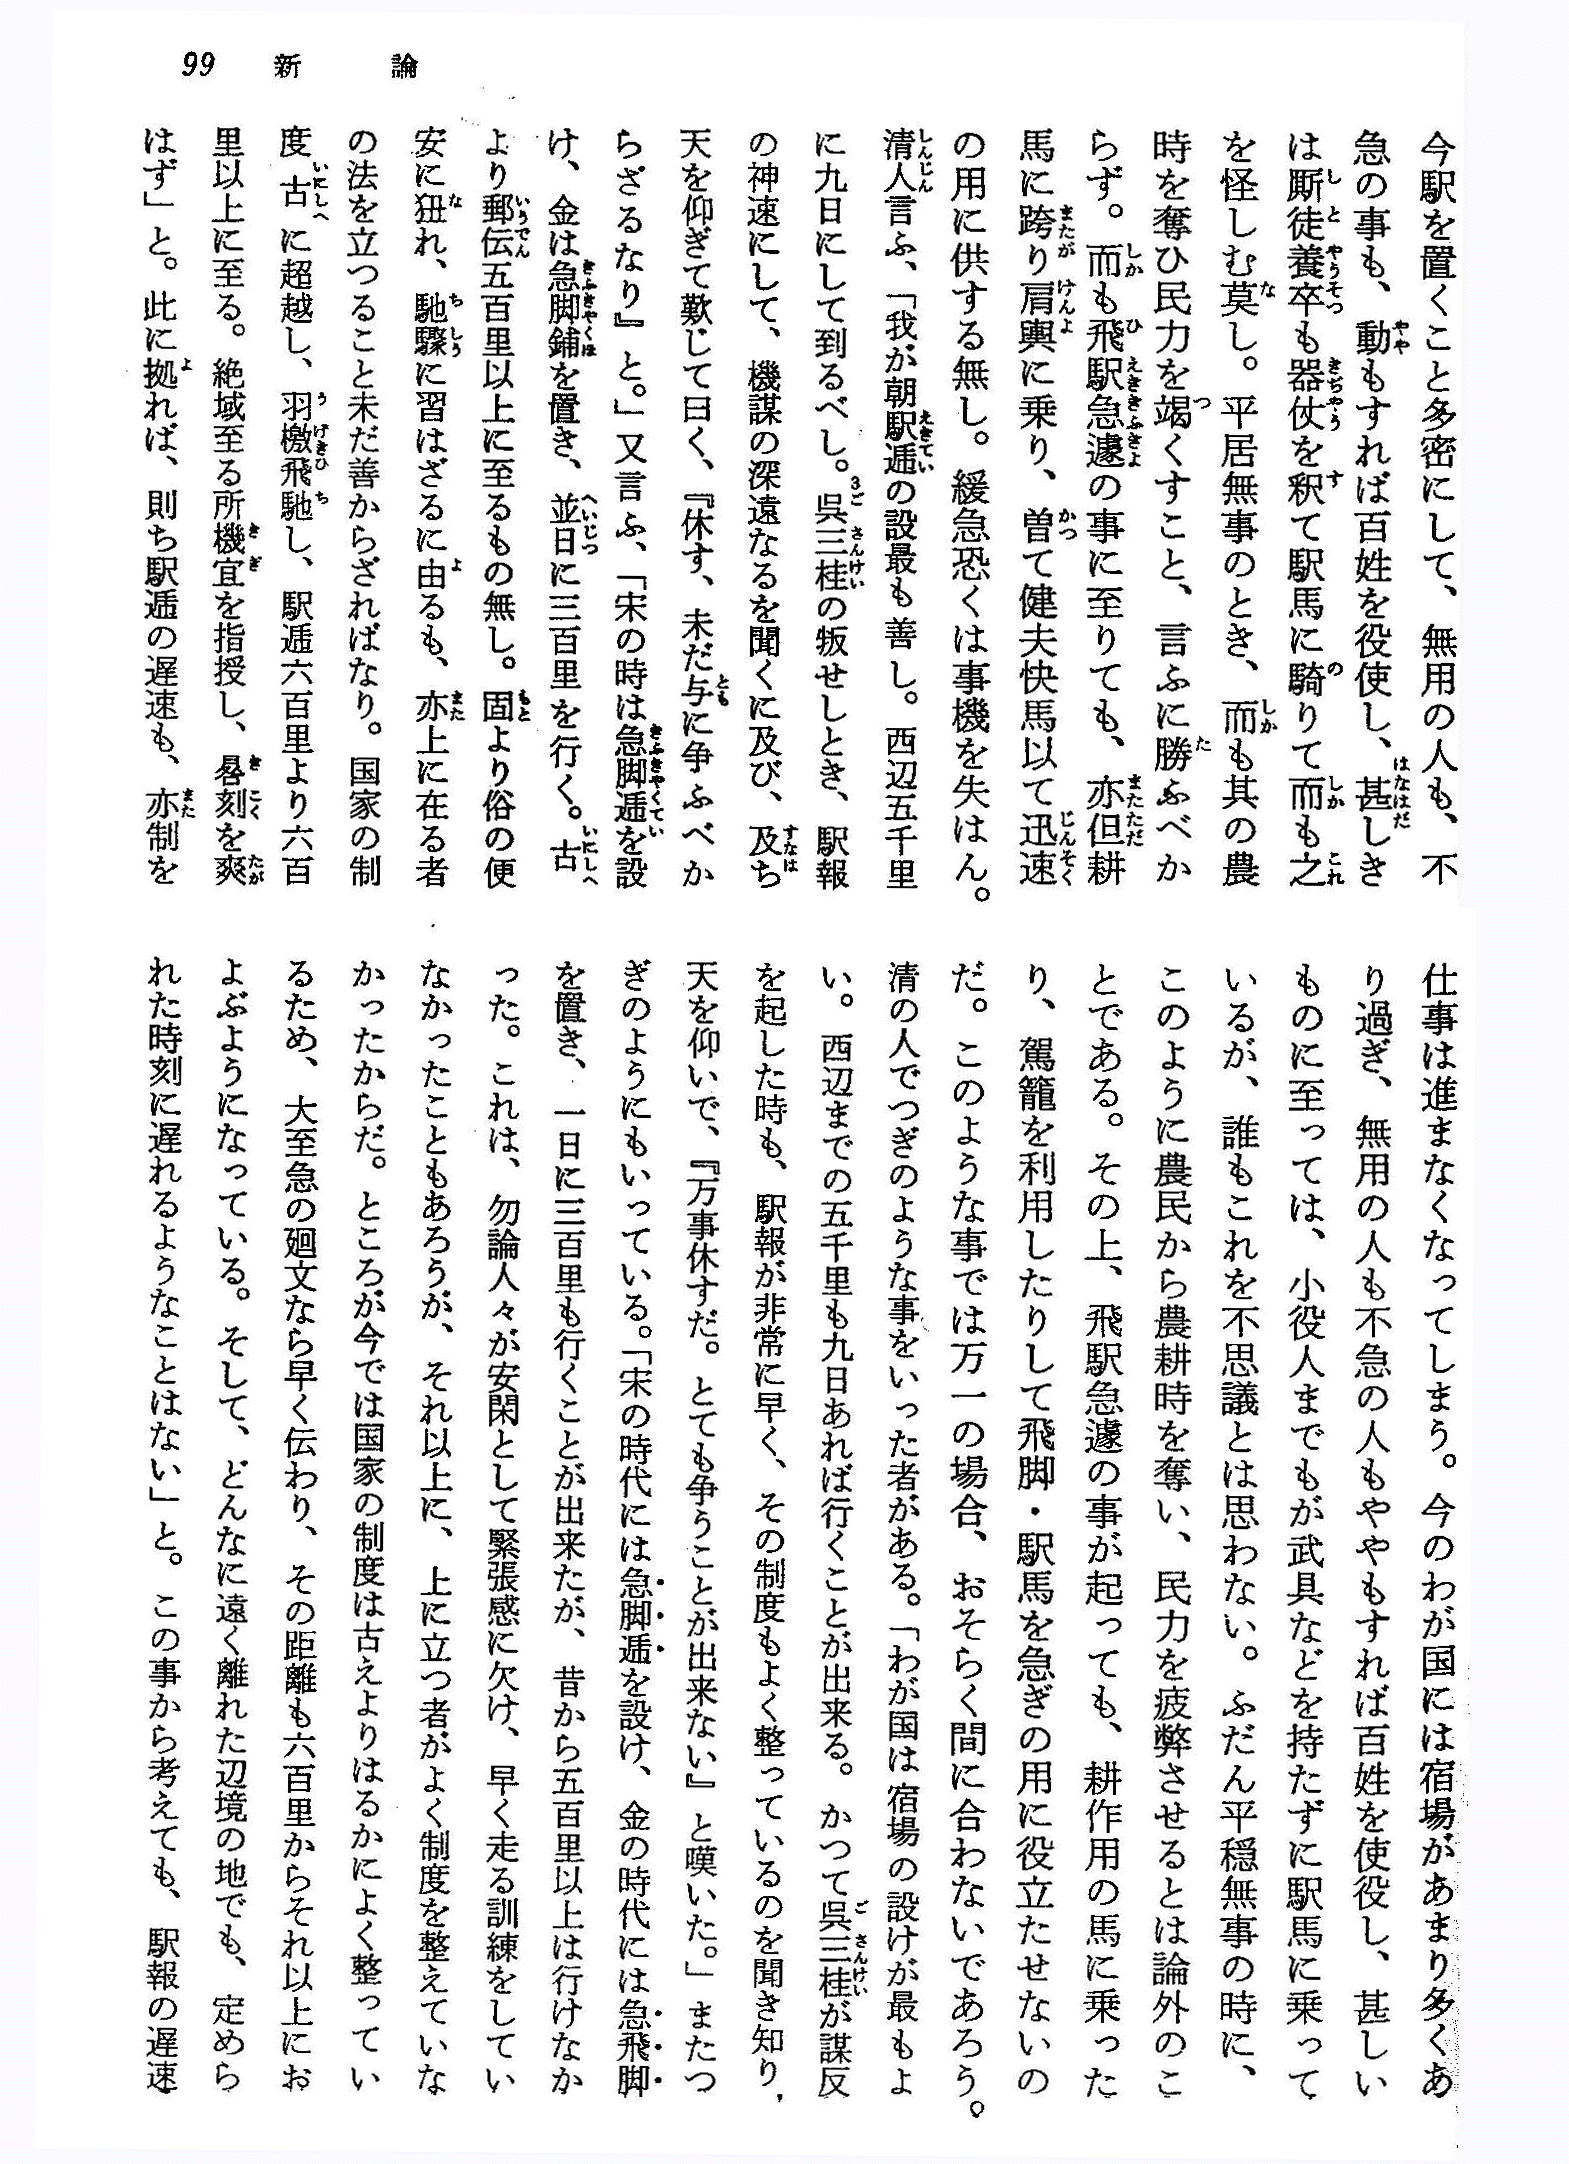 99　新論
今駅を置くこと多密にして、無用の人も、不
急の事も、動もすれば百姓を役使し、甚しき
は厮徒養卒も器仗を釈て駅馬に騎りて而も之
を怪しむ莫し。平居無事のとき、而も其の農
時を奪ひ民力を竭くすこと、言ふに勝ふべか
らず。而も飛駅急遽の事に至りても、亦但耕
馬に跨り肩輿に乗り、曽て健夫快馬以て迅速
の用に供する無し。緩急恐くは事機を失はん。
清人言ふ、「我が朝駅逓の設最も善し。西辺五千里
に九日にして到るべし。呉三桂の叛せしとき、駅報
の神速にして、機謀の深遠なるを聞くに及び、及ち
天を仰ぎて歎じて曰く、『休す、未だ与に争ふべか
らざるなり』と。」又言ふ、「宋の時は急脚逓を設
け、金は急脚鋪を置き、並日に三百里を行く。古
より郵伝五百里以上に至るもの無し。固より俗の便
安に狃れ、馳驟に習はざるに由るも、亦上に在る者
の法を立つること未だ善からざればなり。国家の制
度古に超越し、羽檄飛馳し、駅逓六百里より六百
里以上に至る。絶域至る所機宜を指授し、晷刻を爽
はず」と。此に拠れば、則ち駅逓の遅速も、亦制を
仕事は進まなくなってしまう。今のわが国には宿場があまり多くあ
り過ぎ、無用の人も不急の人もややもすれば百姓を使役し、甚しい
ものに至っては、小役人までもが武具などを持たずに駅馬に乗って
いるが、誰もこれを不思議とは思わない。ふだん平穏無事の時に、
このように農民から農耕時を奪い、民力を疲弊させるとは論外のこ
とである。その上、飛駅急遽の事が起っても、耕作用の馬に乗った
り、駕籠を利用したりして飛脚・駅馬を急ぎの用に役立たせないの
だ。このような事では万一の場合、おそらく間に合わないであろう。
清の人でつぎのような事をいった者がある。「わが国は宿場の設けが最もよ
い。西辺までの五千里も九日あれば行くことが出来る。かつて呉三桂が謀反
を起した時も、駅報が非常に早く、その制度もよく整っているのを聞き知り、
天を仰いで、『万事休すだ。とても争うことが出来ない』と嘆いた。」またつ
ぎのようにもいっている。「宋の時代には急脚逓を設け、金の時代には急飛脚
を置き、一日に三百里も行くことが出来たが、昔から五百里以上は行けなか
った。これは、勿論人々が安閑として緊張感に欠け、早く走る訓練をしてい
なかったこともあろうが、それ以上に、上に立つ者がよく制度を整えていな
かったからだ。ところが今では国家の制度は古えよりはるかによく整ってい
るため、大至急の廻文なら早く伝わり、その距離も六百里からそれ以上にお
よぶようになっている。そして、どんなに遠く離れた辺境の地でも、定めら
れた時刻に遅れるようなことはない」と。この事から考えても、駅報の遅速